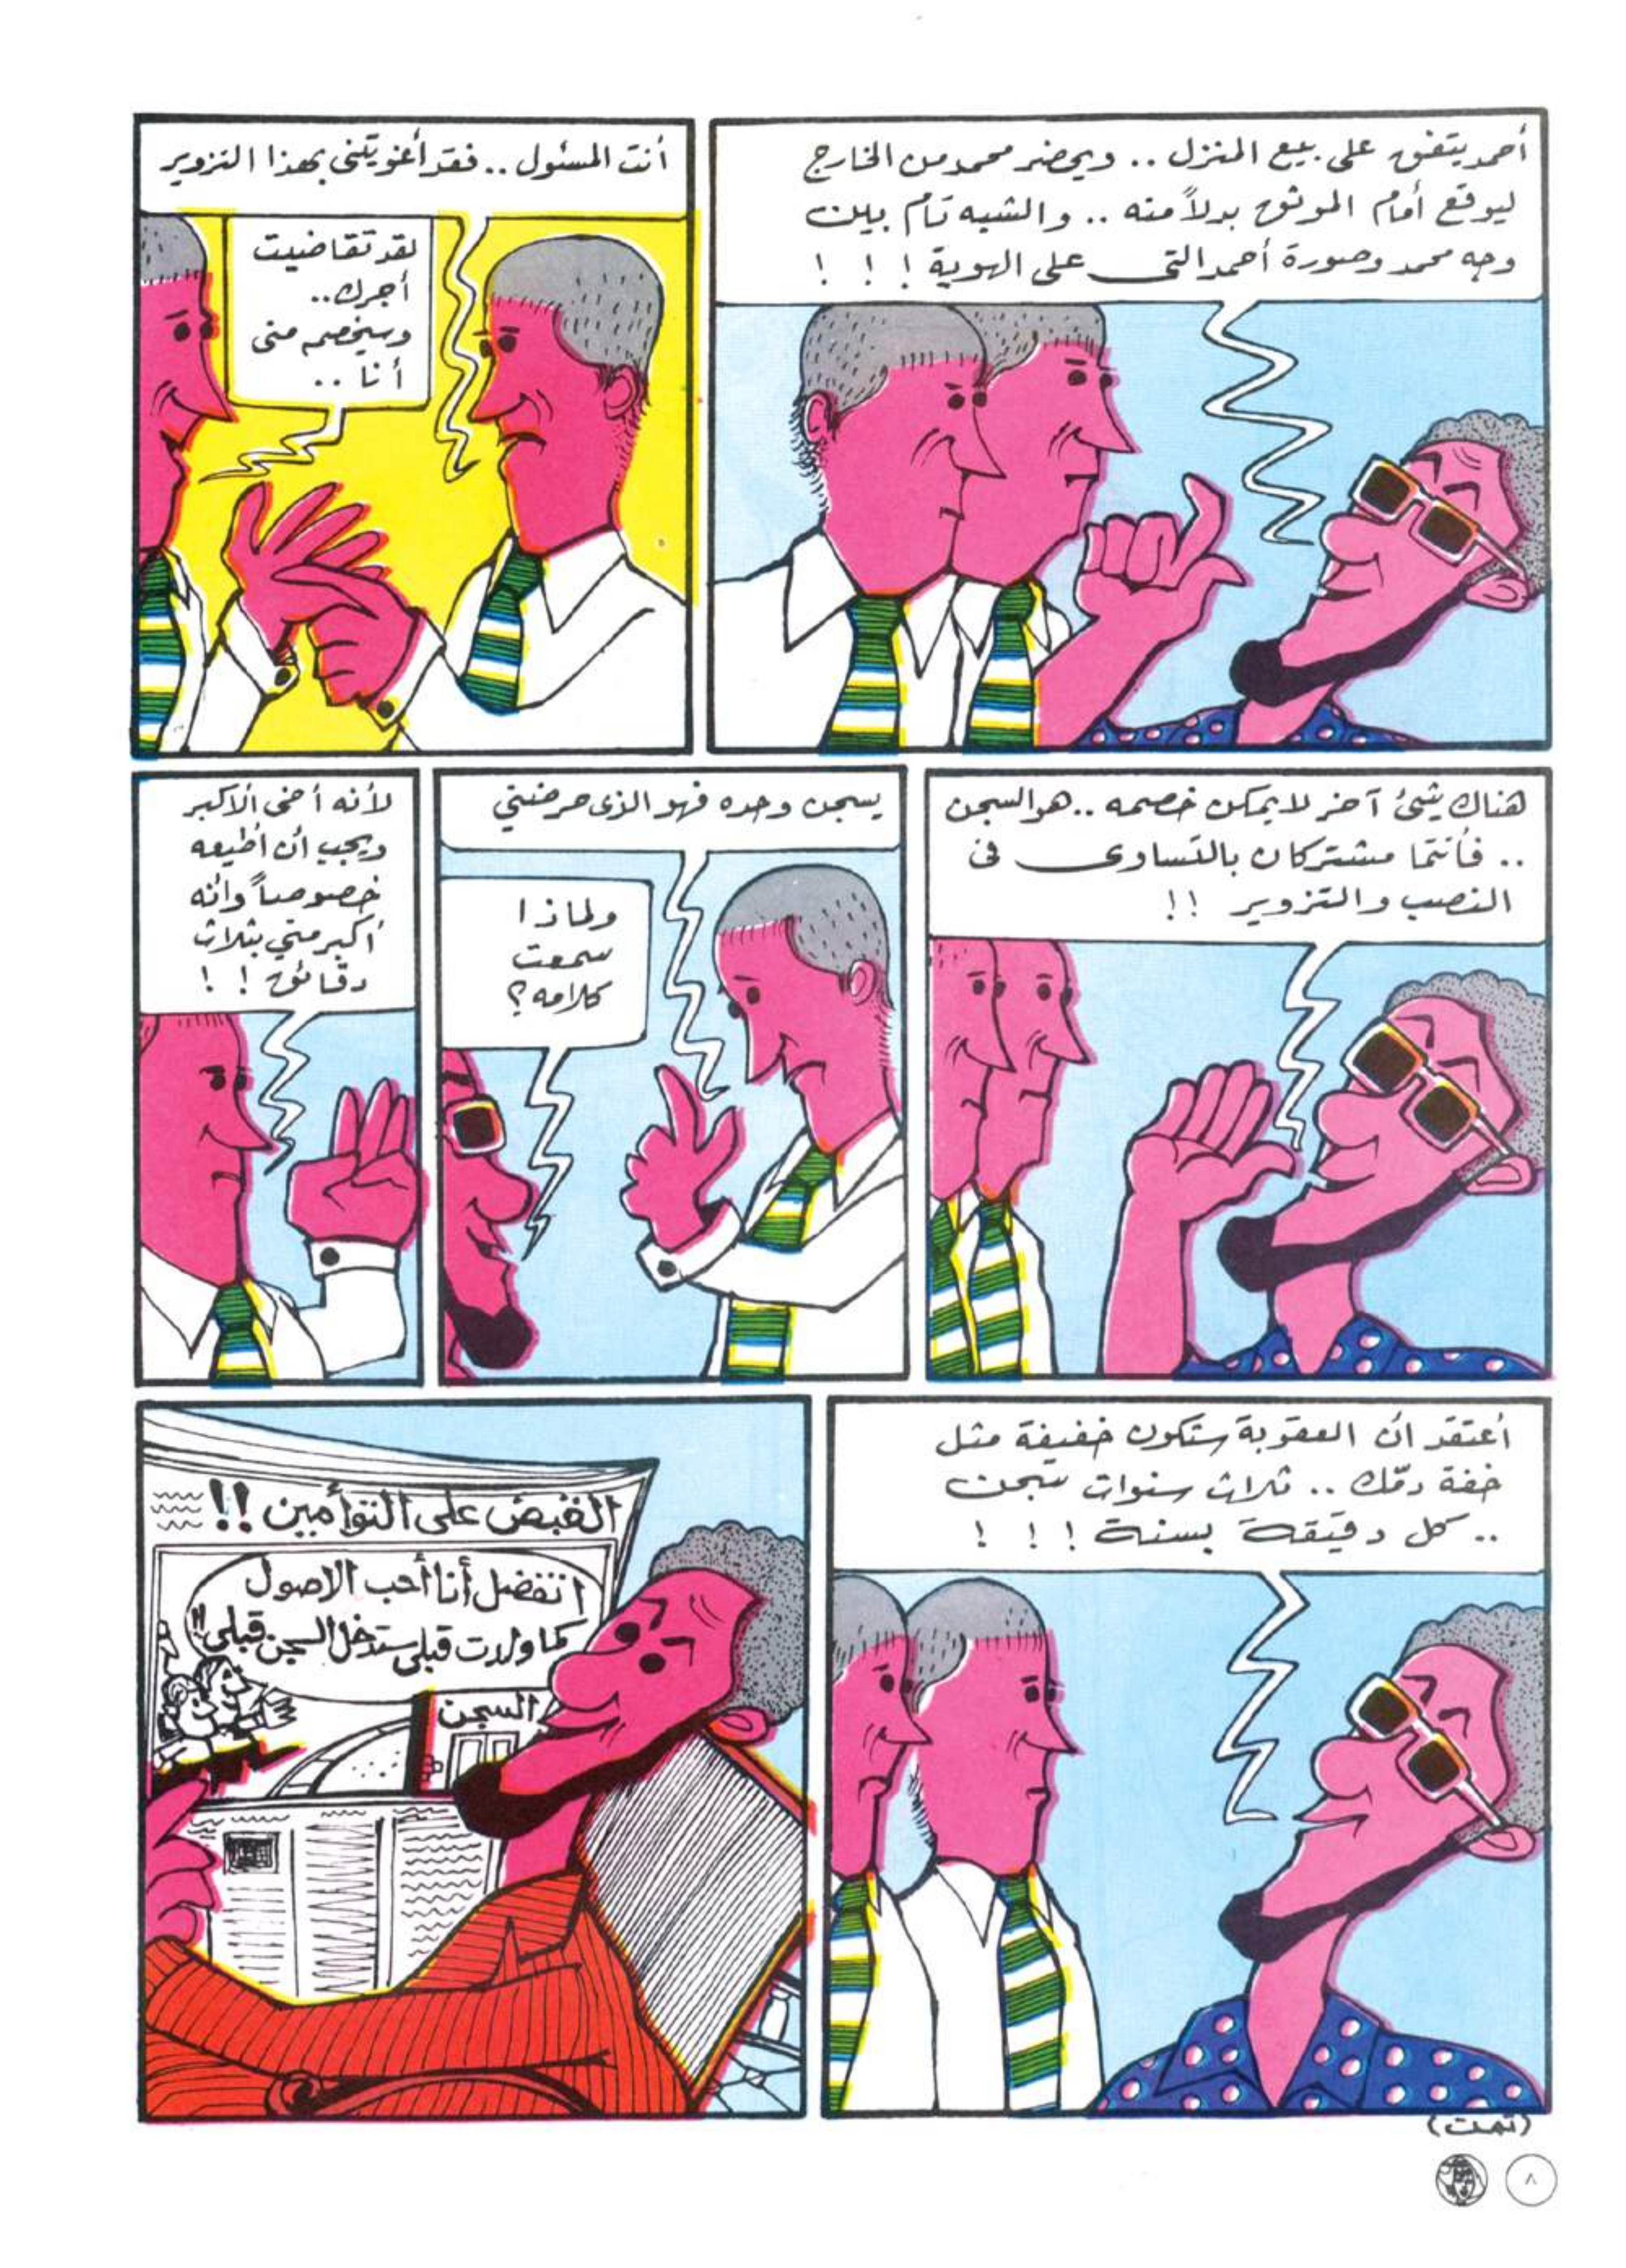 أحمد يتفق على بيع المنزل .. ويحضر محمد من الخارج
ليوقع أمام الموثق بدلاً منه .. والشبه تام بين
وجه محمد وصورة أحمد التى على الهوية ! ! !
أنت المسئول .. فقد أغويتنى بهذا التزوير
لقد تقاضيت
أجرك ..
وسيخصم منى
أنا ..
هناك شئ آخر لا يمكن خصمه .. هو السجن
.. فأنتما مشتركان بالتساوى فى
النصب والتزوير !!
يسجن وحده فهو الذى حرضنى
ولماذا
سمعت
كلامه ؟
لأنه أخى الأكبر
ويجب أن أطيعه
خصوصاً وأنه
أكبر منى بثلاث
دقائق ! !
أعتقد أن العقوبة ستكون خفيفة مثل
خفة دمّك .. ثلاث سنوات سجن
.. كل دقيقة بسنة ! ! !
القبض على التوأمين !!
اتفضل أنا أحب الاصول
كما ولدت قبلى ستدخل السجن قبلى !!
السجن
(تمت)
٨